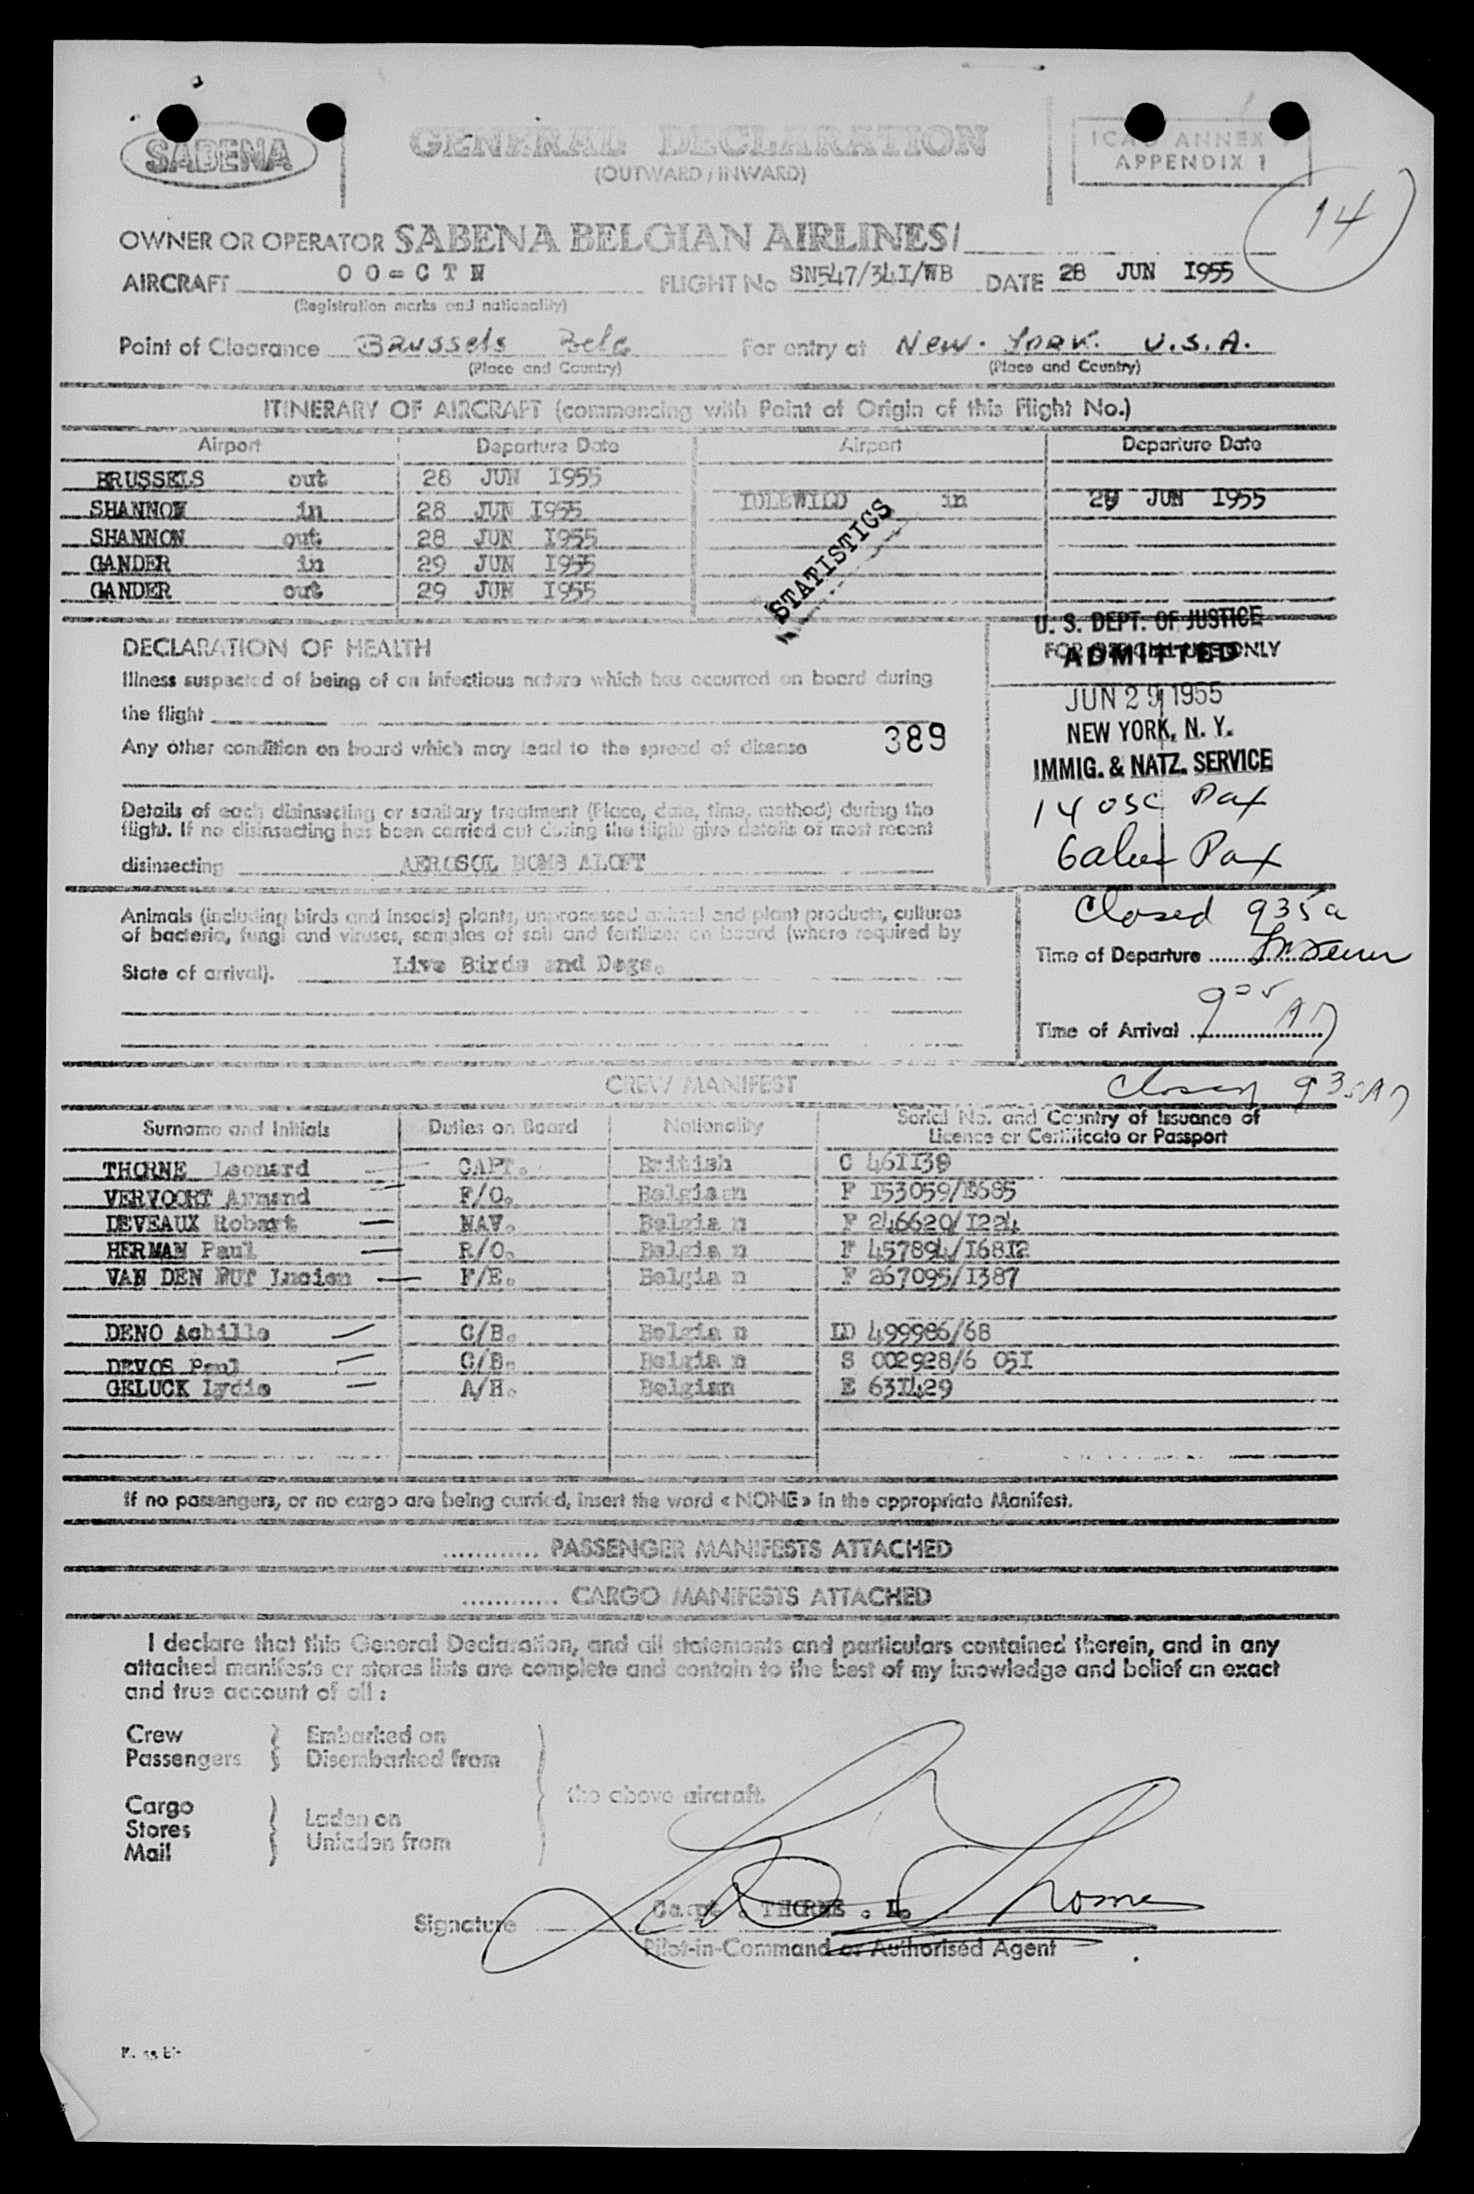 SABENA
GENERAL DECLARATION
(OUTWARD / INWARD)
ICAO ANNEX
APPENDIX 1
14
OWNER OR OPERATOR SABENA BELGIAN AIRLINES/
AIRCRAFT OO-CTN FLIGHT No SN547/34I/WB DATE 28 JUN I955
(Registration marks and nationality)
Point of Clearance Brussels Belg For entry at New. York. U.S.A.
(Place and Country) (Place and Country)
ITINERARY OF AIRCRAFT (commencing with Point of Origin of this Flight No.)
Airport Departure Date Airport Departure Date
BRUSSELS out 28 JUN I955
SHANNON in 28 JUN I955 IDLEWILD in 29 JUN I955
SHANNON out 28 JUN I955
GANDER in 29 JUN I955
GANDER out 29 JUN I955
STATISTICS
U. S. DEPT. OF JUSTICE
FOR OFFICIAL USE ONLY
ADMITTED
JUN 29 1955
NEW YORK, N. Y.
IMMIG. & NATZ. SERVICE
14 usc Pax
6 alien Pax
DECLARATION OF HEALTH
Illness suspected of being of an infectious nature which has occurred on board during
the flight
Any other condition on board which may lead to the spread of disease
389
Details of each disinsecting or sanitary treatment (Place, date, time, method) during the
flight. If no disinsecting has been carried out during the flight give details of most recent
disinsecting AEROSOL BOMB ALOFT
Animals (including birds and insects) plants, unprocessed animal and plant products, cultures
of bacteria, fungi and viruses, samples of soil and fertilizer on board (where required by
State of arrival). Live Birds and Dogs.
Closed 935a
Time of Departure
Time of Arrival 905 AM
CREW MANIFEST
Closed 935 AM
Surname and Initials Duties on Board Nationality Serial No. and Country of Issuance of
Licence or Certificate or Passport
THORNE Leonard CAPT. British C 46II39
VERVOORT Armand F/O. Belgian F I53059/E685
DEVEAUX Robert NAV. Belgia n F 246620/I224
HERMAN Paul R/O. Belgia n F 457894/I68I2
VAN DEN NUT Lucien F/E. Belgia n F 267095/I387
DENO Achille C/B. Belgia n LD 499986/68
DEVOS Paul C/B. Belgia n S 002928/6 05I
GELUCK Lydie A/H. Belgian E 63I429
If no passengers, or no cargo are being carried, insert the word « NONE » in the appropriate Manifest.
............ PASSENGER MANIFESTS ATTACHED
............ CARGO MANIFESTS ATTACHED
I declare that this General Declaration, and all statements and particulars contained therein, and in any
attached manifests or stores lists are complete and contain to the best of my knowledge and belief an exact
and true account of all :
Crew Embarked on
Passengers Disembarked from
the above aircraft.
Cargo Laden on
Stores Unladen from
Mail
Signature Capt. THORNE . L.
L. Thorne
Pilot-in-Command or Authorised Agent